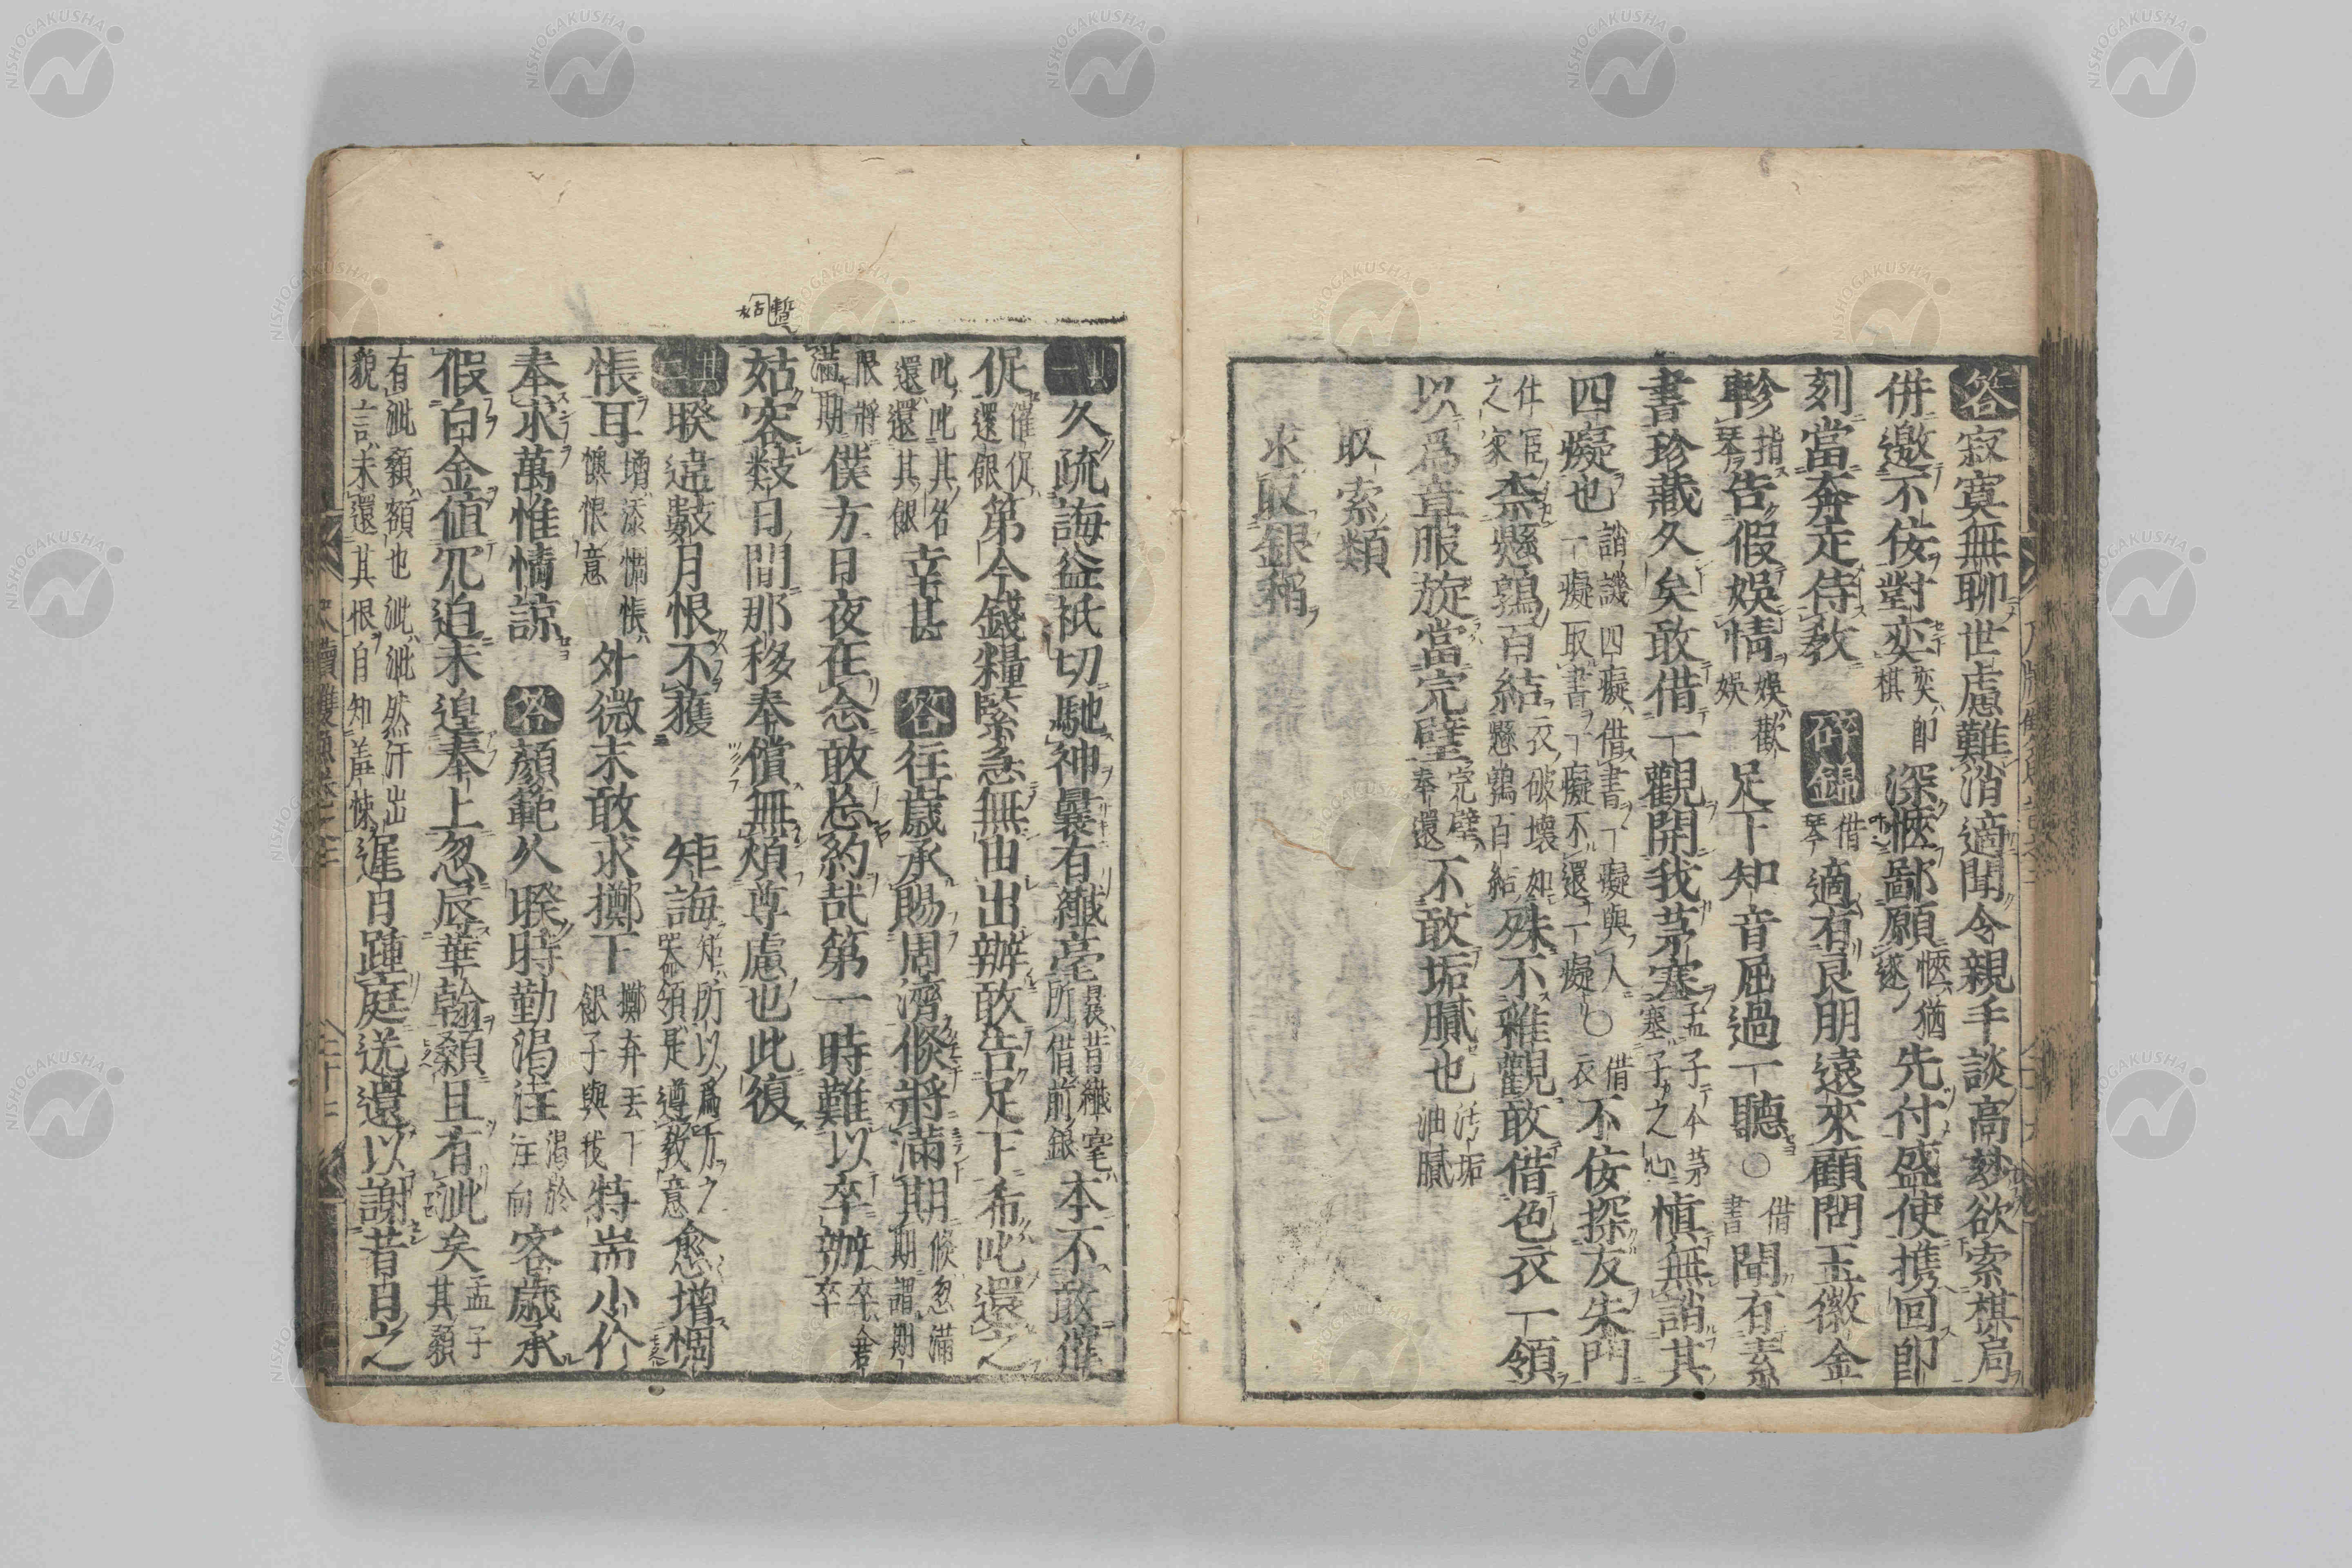 答 寂寞無聊世慮難消適聞令親手談高玅欲索棋局
併邀不佞對奕 奕即棋 深愜鄙願 愜猶遂 先付盛使携回即
刻當奔走侍教 碎錦 借琴 適有良朋遠來顧問玉徽金
軫 指琴 告假娛情 娛歡娛 足下知音屈過一聽○ 借書 聞有素
書珍藏久矣敢借一觀開我茅塞 孟子今茅塞子之心 慎無誚其
四癡也 誚譏四癡借書一癡與人一癡取書一癡不還一癡 ○ 借衣 不佞探友朱門
仕宦之家 柰懸鶉百結 衣破壞如懸鶉百結 殊不雅觀敢借色衣一領
以爲章服旋當完璧 完璧奉還 不敢垢膩也 汚垢油膩
取索類
求取銀稱
其一 久疏誨益祇切馳神曩有纖毫 曩昔纖毫所借前銀 本不敢催
促 催促還銀 第今錢糧緊急無由出辦敢告足下希叱還之
叱叱其名還還其銀 幸甚 答 往歲承賜周濟倐將滿期 倐忽滿期謂期
限將滿期 僕方日夜在念敢忘約哉第一時難以卒辦 卒倉卒
姑容數日間那移奉償無煩尊慮也此復
其二 睽違數月恨不獲 矩誨 矩所以爲方之器領是遵教意 愈增惆
悵耳 增添惆悵懊恨意 外微末敢求擲下 擲弃丟下銀子與我 特耑小伻
奉求萬惟情諒 答 顔範久睽時勤渴注 渴於注向 客歲承
假白金值冗迫未遑奉上忽辱華翰顙且有泚矣 孟子其顙
有泚顙額也泚泚然汗出貌言未還其恨自知羞悚 遲日踵庭送還以謝昔日之
暫 姑